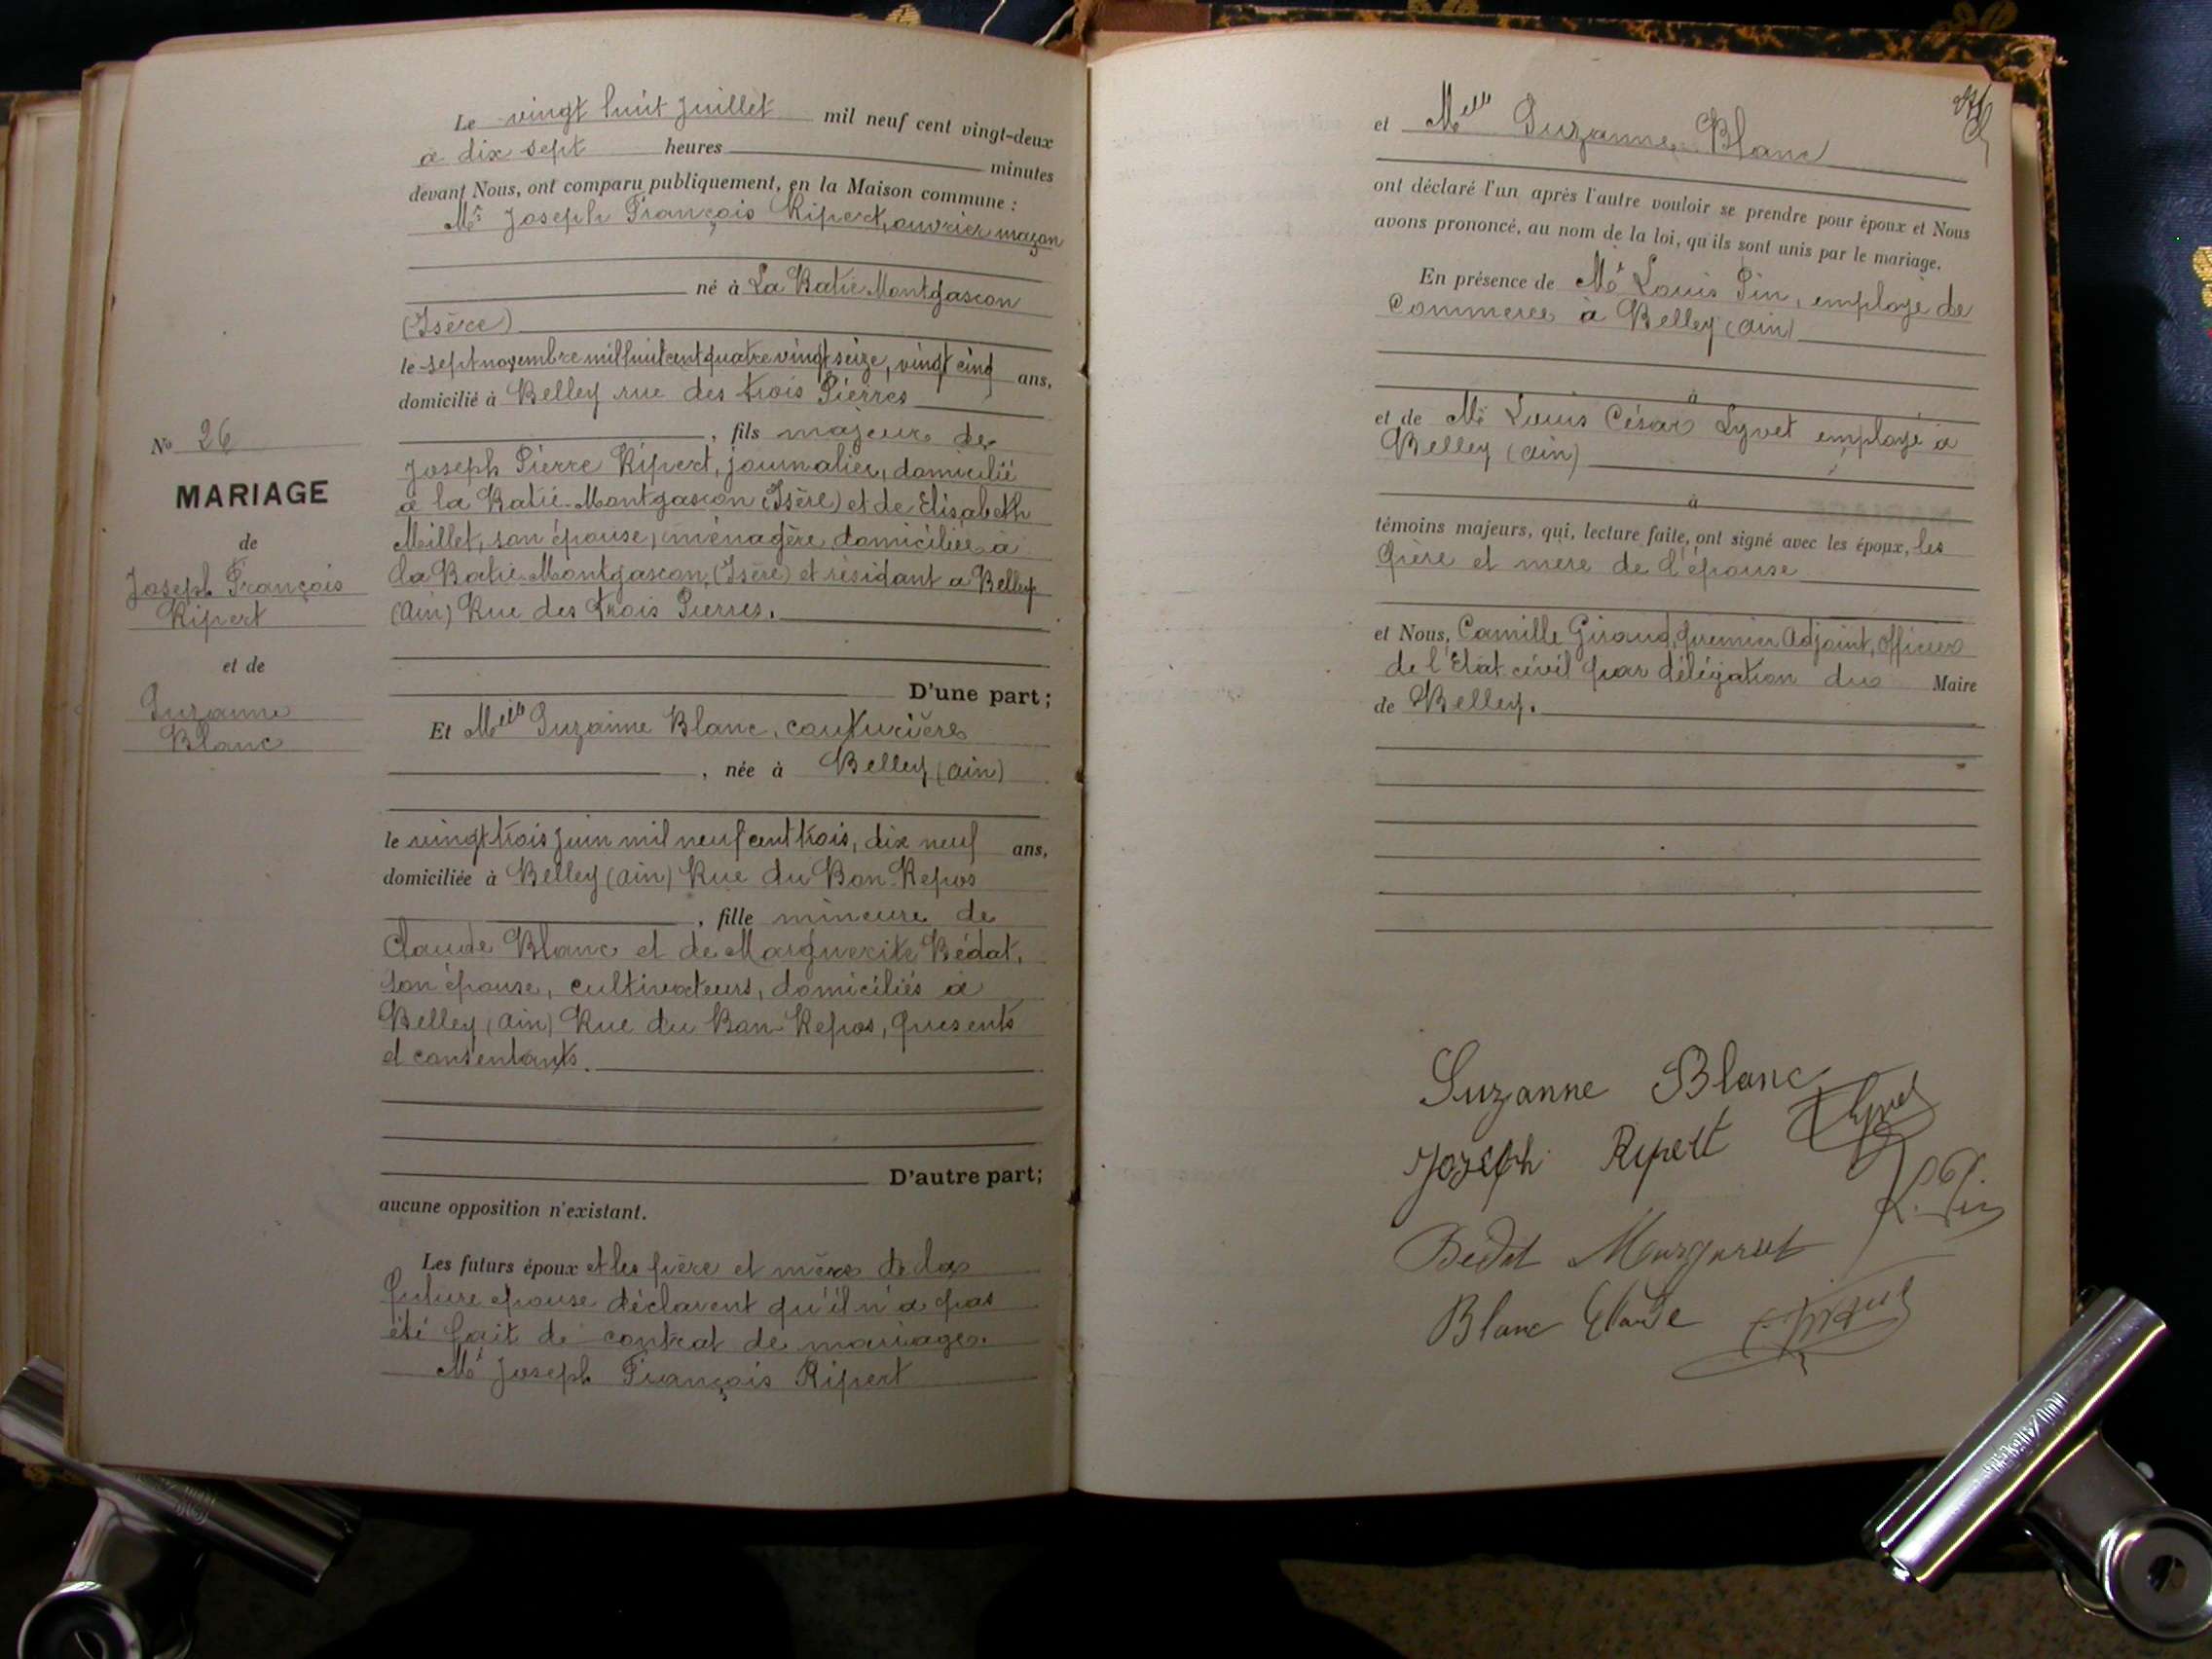 No 26
MARIAGE
de
Joseph François
Ripert
et de
Suzanne
Blanc
Le vingt huit juillet mil neuf cent vingt-deux
à dix sept heures minutes
devant Nous, ont comparu publiquement, en la Maison commune :
Mr Joseph François Ripert, ouvrier maçon
né à La Batie Montgascon
(Isère)
le sept novembre mil huit cent quatre vingt seize, vingt cinq ans,
domicilié à Belley rue des trois Pierres
, fils majeur de
Joseph Pierre Ripert, journalier, domicilié
à la Batie-Montgascon (Isère) et de Elisabeth
Millet, son épouse, ménagère domiciliée à
la Batie-Montgascon (Isère) et résidant à Belley
(Ain) Rue des trois Pierres.
D'une part ;
Et Melle Suzanne Blanc, couturière
, née à Belley (Ain)
le vingt trois juin mil neuf cent trois, dix neuf ans,
domiciliée à Belley (Ain) Rue du Bon-Repos
, fille mineure de
Claude Blanc et de Marguerite Bédat,
son épouse, cultivateurs, domiciliés à
Belley (Ain) Rue du Bon-Repos, présents
et consentants.
D'autre part;
aucune opposition n'existant.
Les futurs époux et les père et mère de la
future épouse déclarent qu'il n'a pas
été fait de contrat de mariage.
Mr Joseph François Ripert
et Melle Suzanne Blanc
ont déclaré l'un après l'autre vouloir se prendre pour époux et Nous
avons prononcé, au nom de la loi, qu'ils sont unis par le mariage.
En présence de Mr Louis Pin, employé de
Commerce à Belley (Ain)
à
et de Mr Louis César Lyvet employé à
Belley (Ain)
à
témoins majeurs, qui, lecture faite, ont signé avec les époux, les
père et mère de l'épouse
et Nous, Camille Giraud, premier Adjoint, Officier
de l'Etat civil par délégation du Maire
de Belley.
Suzanne Blanc
Lyvet
Joseph Ripert
L. Pin
Bedat Marguerit
Blanc Claude